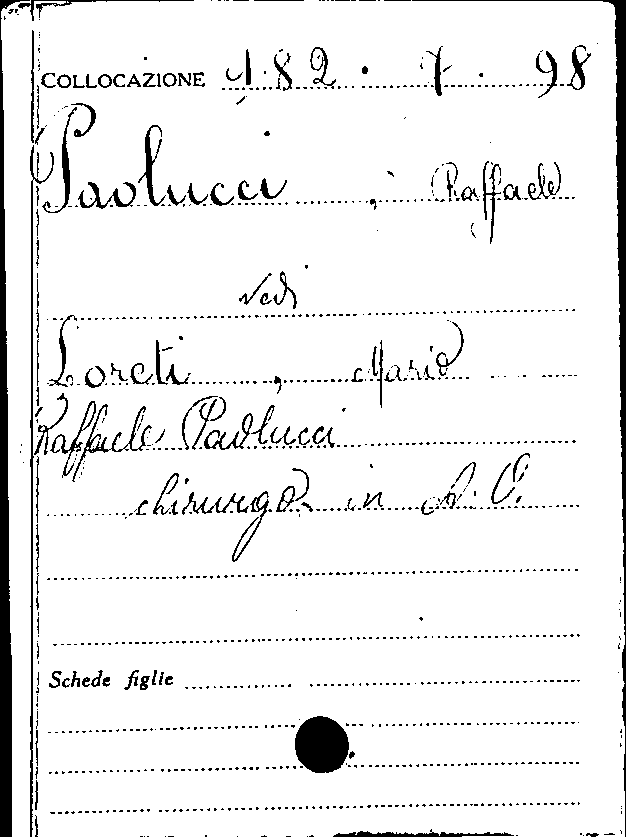 COLLOCAZIONE 182. 7. 98
Paolucci , Raffaele
Vedi
Loreti , Mario
Raffaele Paolucci
chirurgo in A. O.
Schede figlie